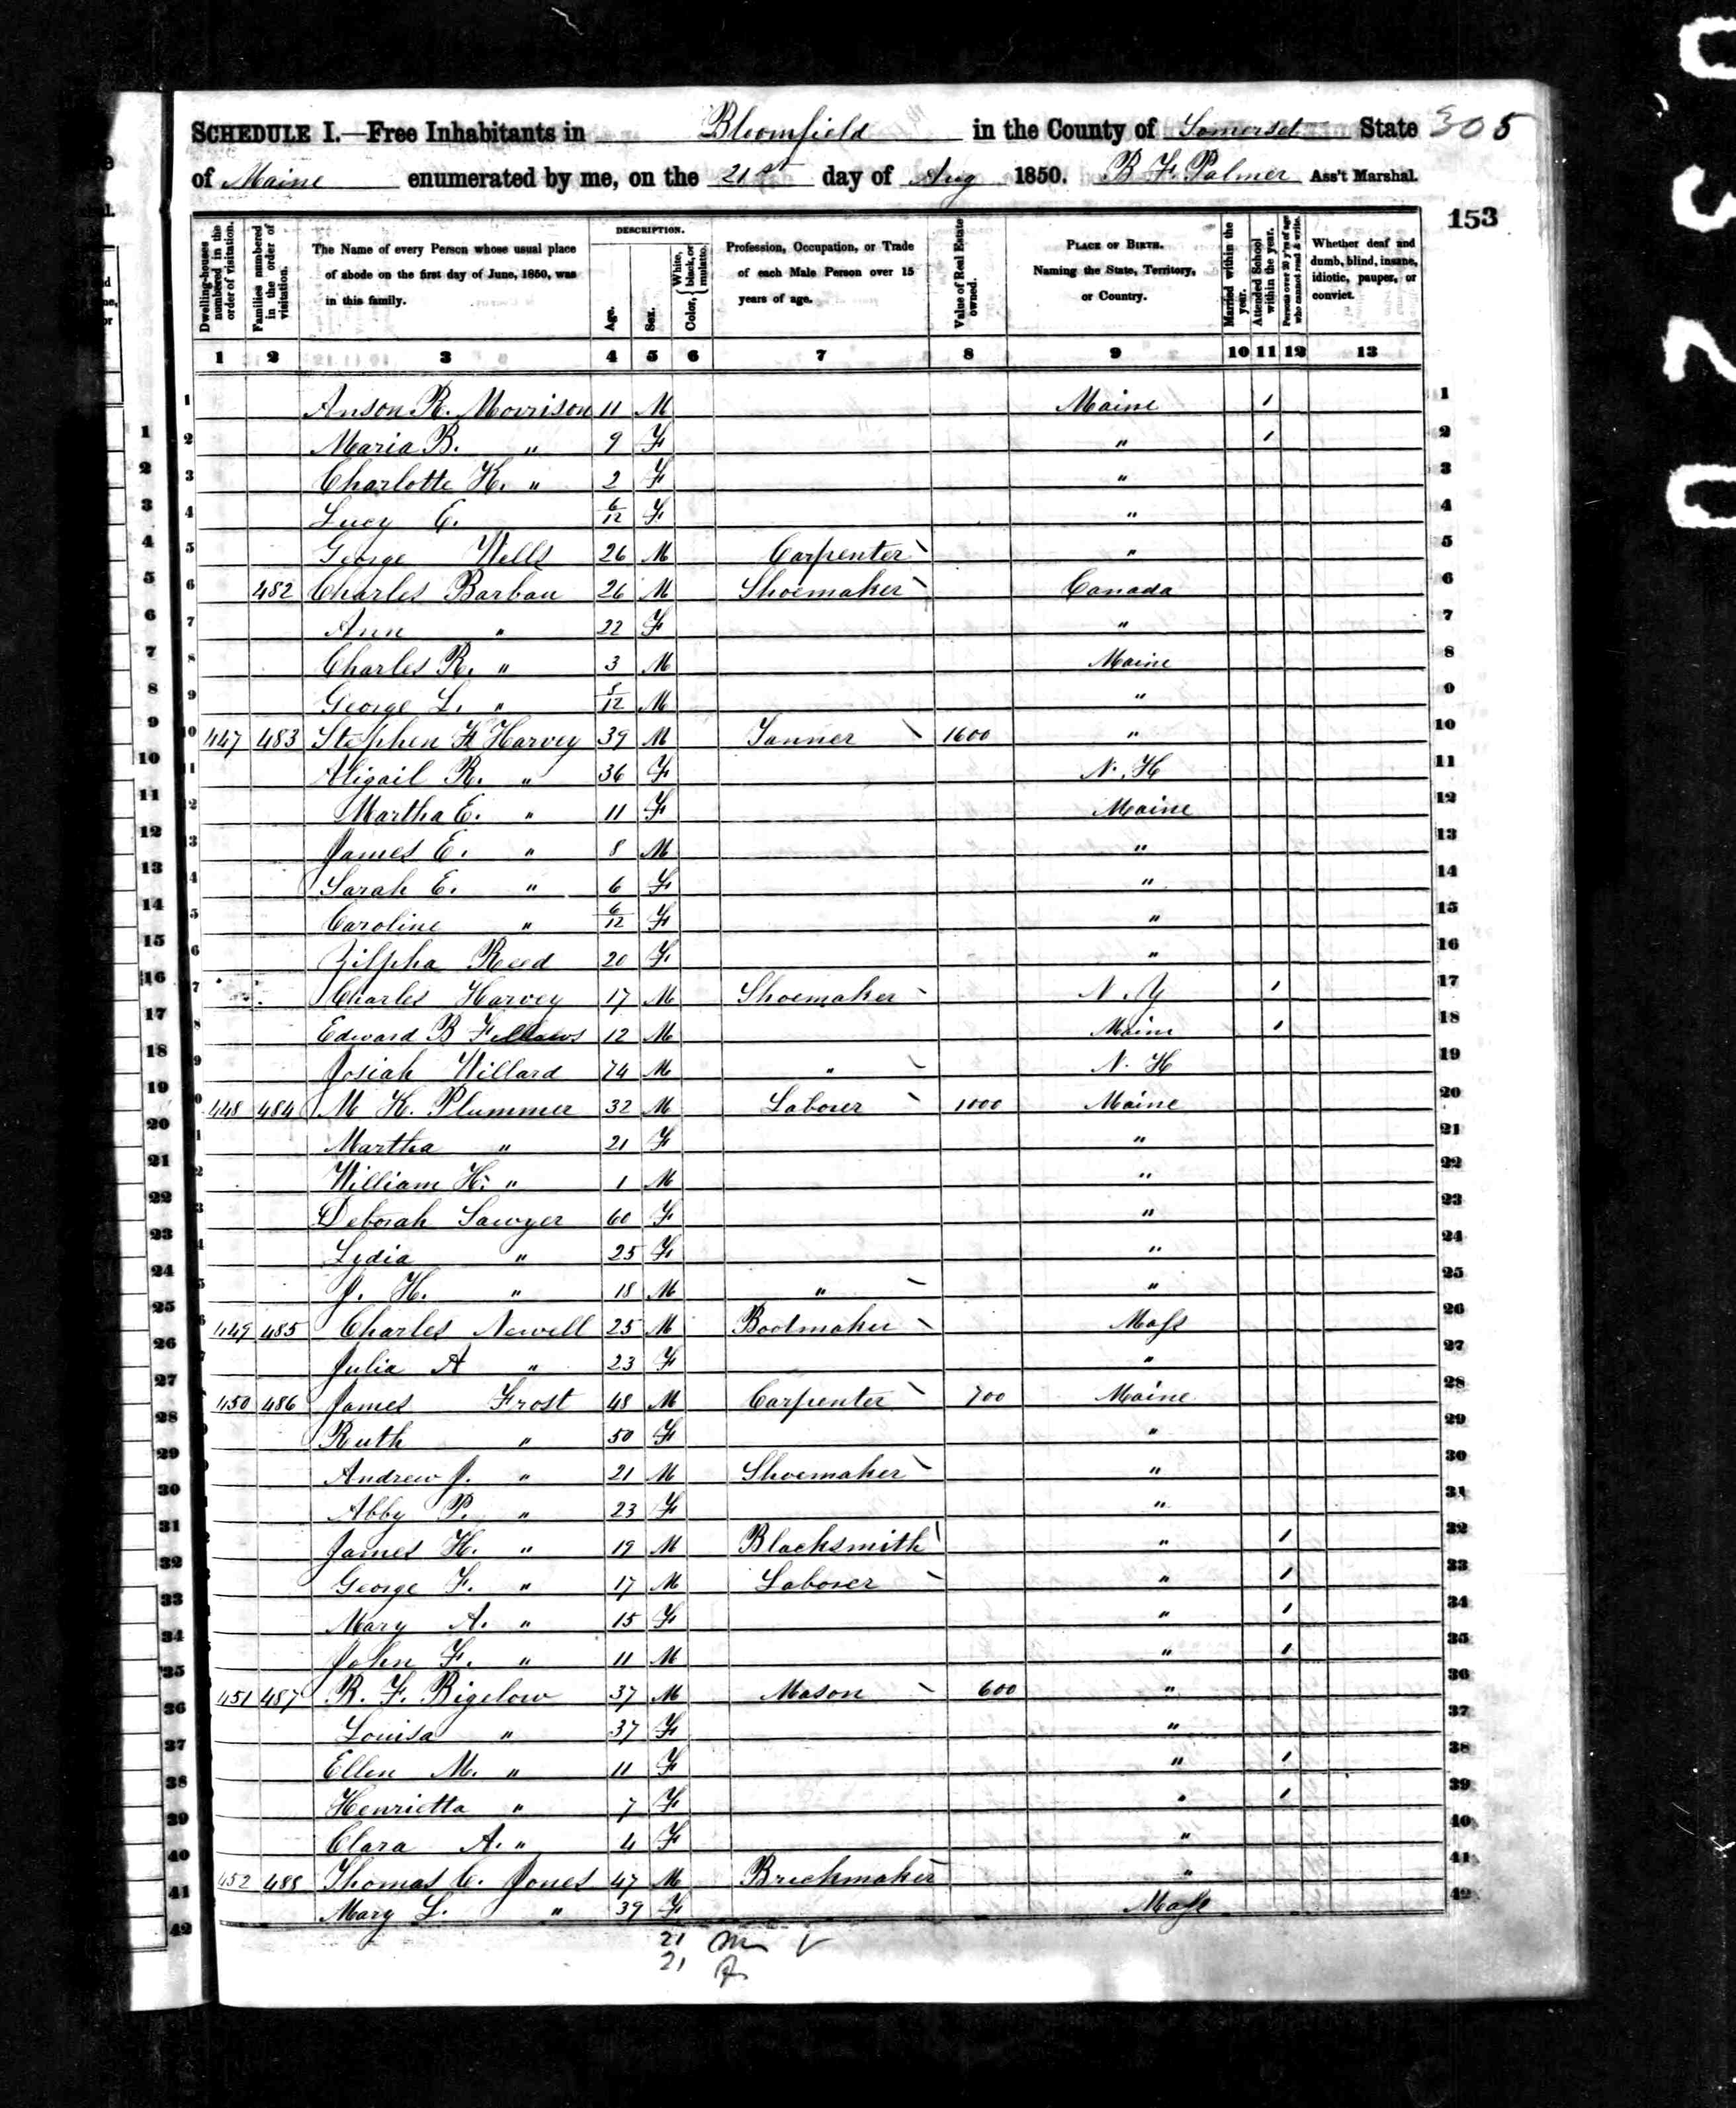 SCHEDULE I.—Free Inhabitants in Bloomfield in the County of Somerset State 305
of Maine enumerated by me, on the 21st day of Aug 1850. B F. Palmer Ass't Marshal.
153
Dwelling-houses numbered in the order of visitation. Families numbered in the order of visitation. The Name of every Person whose usual place of abode on the first day of June, 1850, was in this family. DESCRIPTION. Age. Sex. Color, { White, black, or mulatto. Profession, Occupation, or Trade of each Male Person over 15 years of age. Value of Real Estate owned. PLACE OF BIRTH. Naming the State, Territory, or Country. Married within the year. Attended School within the year. Persons over 20 y'rs of age who cannot read & write. Whether deaf and dumb, blind, insane, idiotic, pauper, or convict.
1 2 3 4 5 6 7 8 9 10 11 12 13
1 Anson R. Morrison 11 M Maine 1 1
2 Maria B. " 9 F " 1 2
3 Charlotte K. " 2 F " 3
4 Lucy E. 6/12 F " 4
5 George Wells 26 M Carpenter " 5
6 482 Charles Barbau 26 M Shoemaker Canada 6
7 Ann " 22 F " 7
8 Charles R. " 3 M Maine 8
9 George L. " 5/12 M " 9
10 447 483 Stephen H Harvey 39 M Tanner 1600 " 10
11 Abigail R. " 36 F N. H 11
12 Martha E. " 11 F Maine 12
13 James E. " 8 M " 13
14 Sarah E. " 6 F " 14
15 Caroline " 6/12 F " 15
16 Zilpha Reed 20 F " 16
17 Charles Harvey 17 M Shoemaker N. Y 1 17
18 Edward B Fellows 12 M Maine 1 18
19 Josiah Willard 74 M " N. H 19
20 448 484 M K. Plummer 32 M Laborer 1000 Maine 20
21 Martha " 21 F " 21
22 William H. " 1 M " 22
23 Deborah Sawyer 60 F " 23
24 Lydia " 25 F " 24
25 J. H. " 18 M " " 25
26 449 485 Charles Newell 25 M Bootmaker Mass 26
27 Julia A " 23 F " 27
28 450 486 James Frost 48 M Carpenter 700 Maine 28
29 Ruth " 50 F " 29
30 Andrew J. " 21 M Shoemaker " 30
31 Abby P. " 23 F " 31
32 James H. " 19 M Blacksmith " 1 32
33 George F. " 17 M Laborer " 1 33
34 Mary A. " 15 F " 1 34
35 John F. " 11 M " 1 35
36 451 487 B. F. Bigelow 37 M Mason 600 " 36
37 Louisa " 37 F " 37
38 Ellen M. " 11 F " 1 38
39 Henrietta " 7 F " 1 39
40 Clara A. " 4 F " 40
41 452 488 Thomas C. Jones 47 M Brickmaker " 41
42 Mary L. " 39 F Mass 42
21 m
21 f